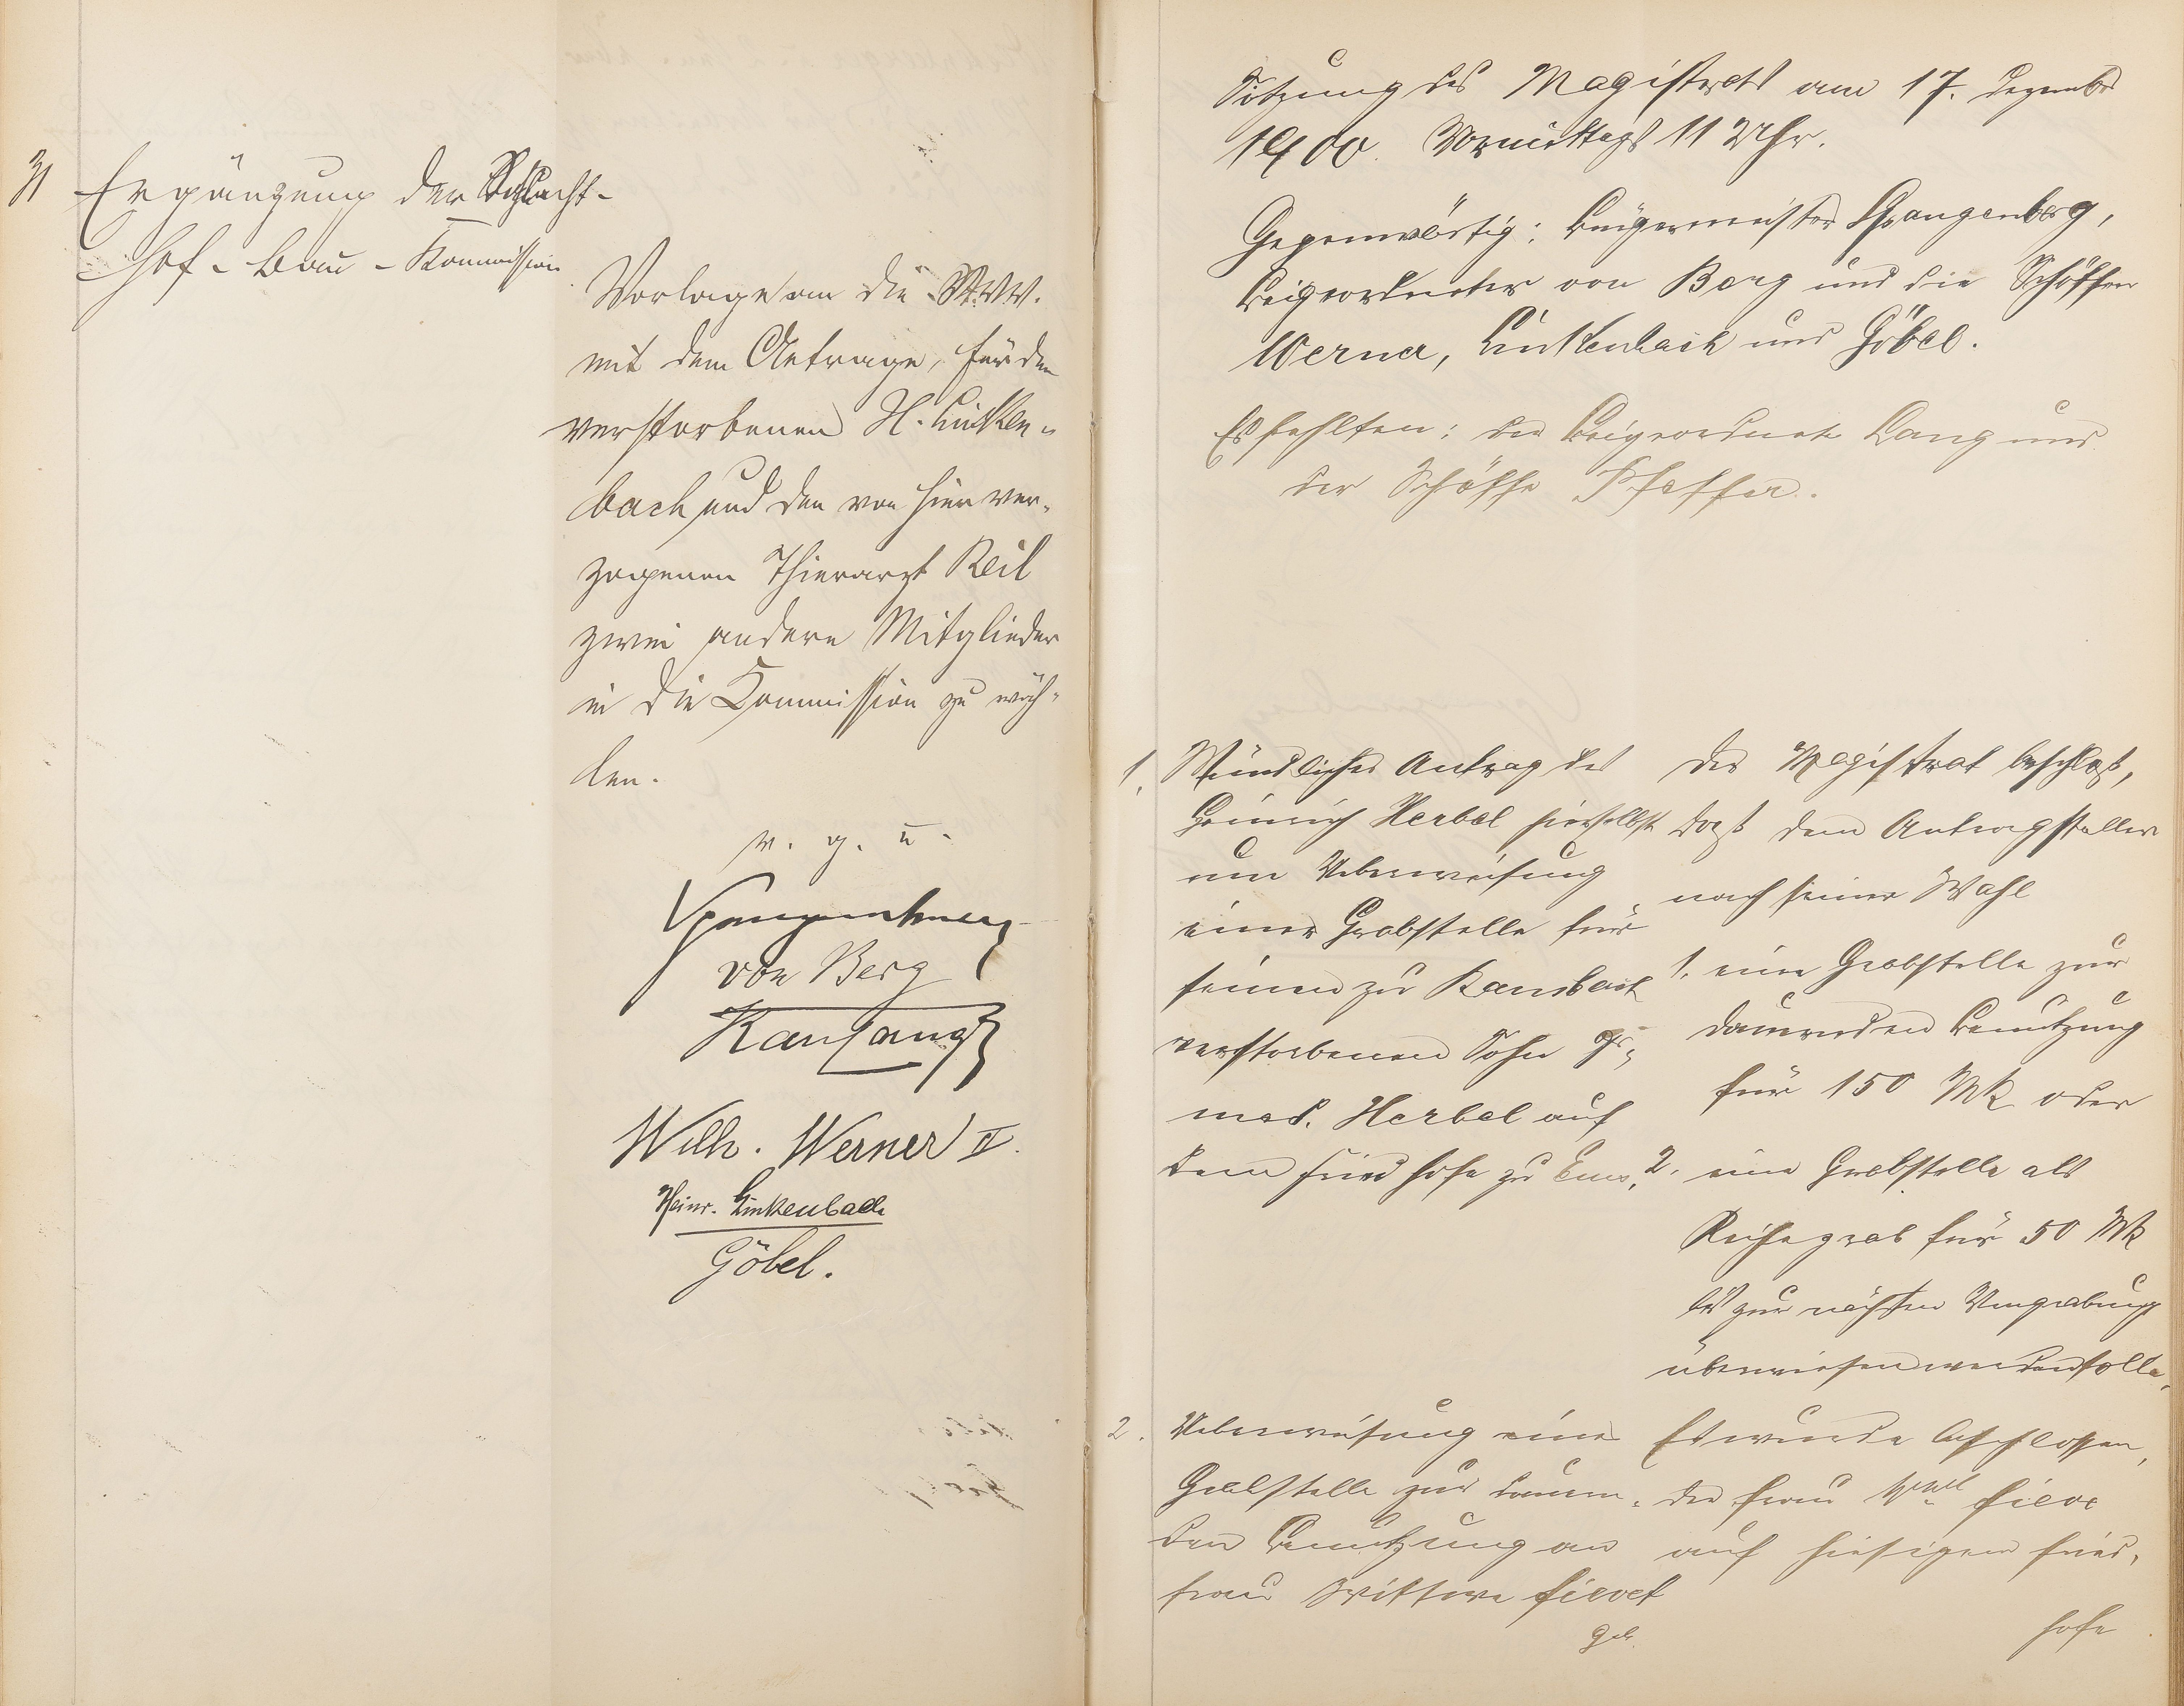 31 Ergänzung der Schlacht-
hof-Bau-Kommission
Vorlage an die St.V.V.
mit dem Antrage, für den
verstorbenen H. Linken-
bach und den von hier ver-
zogenen Thierarzt Keil
zwei andere Mitglieder
in die Commission zu wäh-
len.
v. g. u.
Spangenberg
von Berg
Wilh. Werner II.
Heinr. Linkenbach
Göbel.
Sitzung des Magistrats am 17. Dezember
1900. Vormittags 11 Uhr.
Gegenwärtig: Bürgermeister Spangenberg,
Beigeordneter von Berg und die Schöffen
Werner, Linkenbach und Göbel.
Es fehlten: der Beigeordnete Lang und
der Schöffe Pfeffer.
1. Mündlicher Antrag des
Heinrich Herbel hierselbst
um Ueberweisung
einer Grabstelle für
seinen zu Ransbach
verstorbenen Sohn
med. Herbel auf
dem Friedhofe zu Ems.
Der Magistrat beschließt,
daß dem Antragsteller
nach seiner Wahl
1. eine Grabstelle zur
dauernden Benutzung
für 150 Mk oder
2. eine Grabstelle als
Reihegrab für 50 Mk
bis zur nächsten Umgrabung
überwiesen werden solle.
2. Ueberweisung einer
Grabstelle zur dauern-
den Benutzung an
Frau Wittwe
geb.
Es wurde beschlossen,
der Frau Wwe
auf hiesigem Fried-
hofe